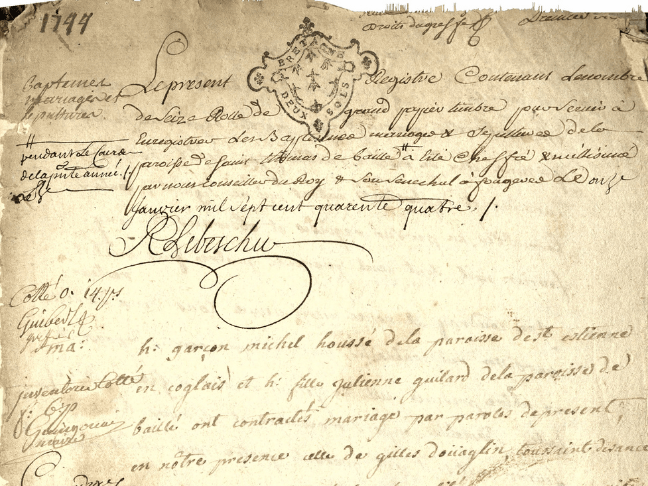 1744
Droits du greffe
BRETAGNE
DEUX SOLS
Baptemes
mariages et
sepultures
Le present Registre Contenant Le nombre
de Seize Rolle de grand papier timbre pour servir à
Enregistrer Les Baptesmes mariages & Sepultures de la
paroisse de saint thomas de baillé # a esté Chiffré & millesimé
par nous conseiller du Roy & Son Senechal à fougeres Le onze
Janvier mil Sept cent quarente quatre ./.
#
pendant le Cours
de la pnte année
RLebeschu
Cotté
ma:
h: garçon michel houssé de la paroisse de st estienne
en coglais et h: fille julienne guilard de la paroisse de
baillé ont contractés mariage par paroles de present,
en nôtre presence celle de gilles doüaglin, toussaint
inventorié Cotté